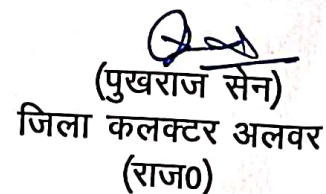 (पुखराज सेन)
जिला कलक्टर अलवर
(राज0)